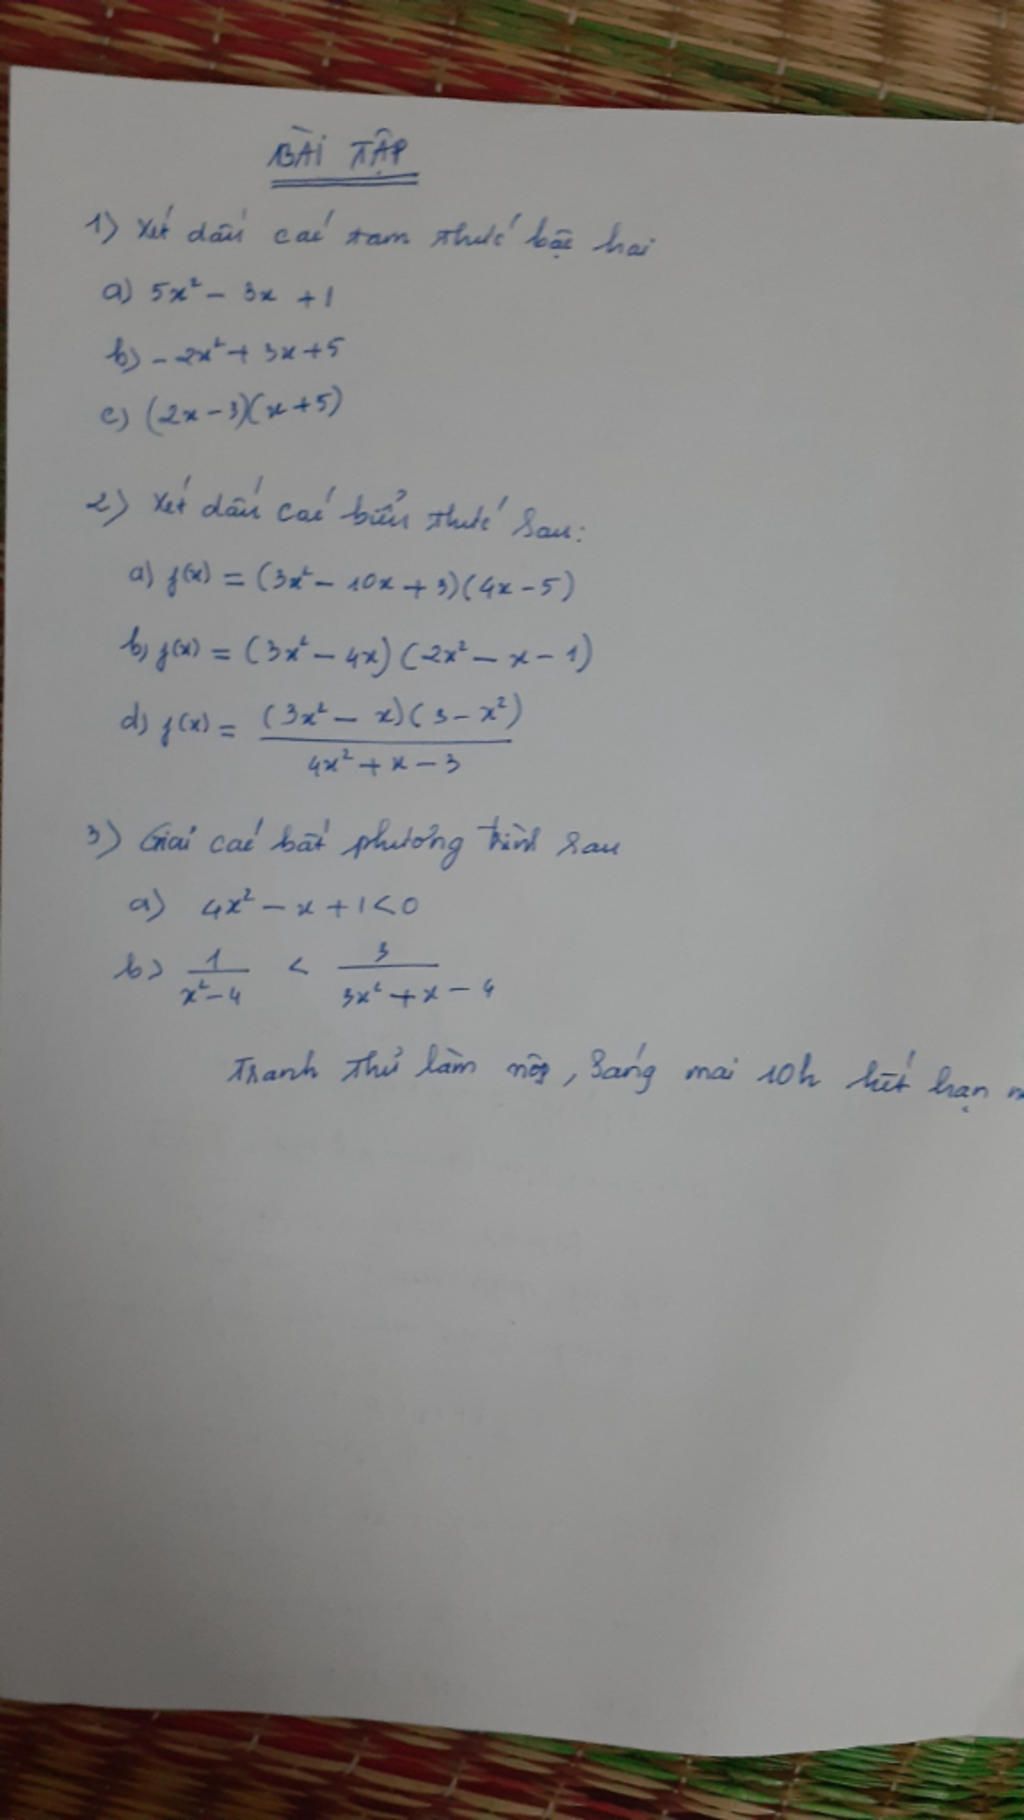 BÀI TẬP
1) Xét dấu các tam thức bậc hai
a) 5x² - 3x + 1
b) - 2x² + 3x + 5
c) (2x - 3)(x + 5)
2) Xét dấu các biểu thức sau:
a) f(x) = (3x² - 10x + 3)(4x - 5)
b) f(x) = (3x² - 4x)(2x² - x - 1)
d) f(x) = (3x² - x)(3 - x²) / (4x² + x - 3)
3) Giải các bất phương trình sau
a) 4x² - x + 1 < 0
b) 1 / (x² - 4) < 3 / (3x² + x - 4)
Tranh thủ làm nộp, sáng mai 10h hết hạn